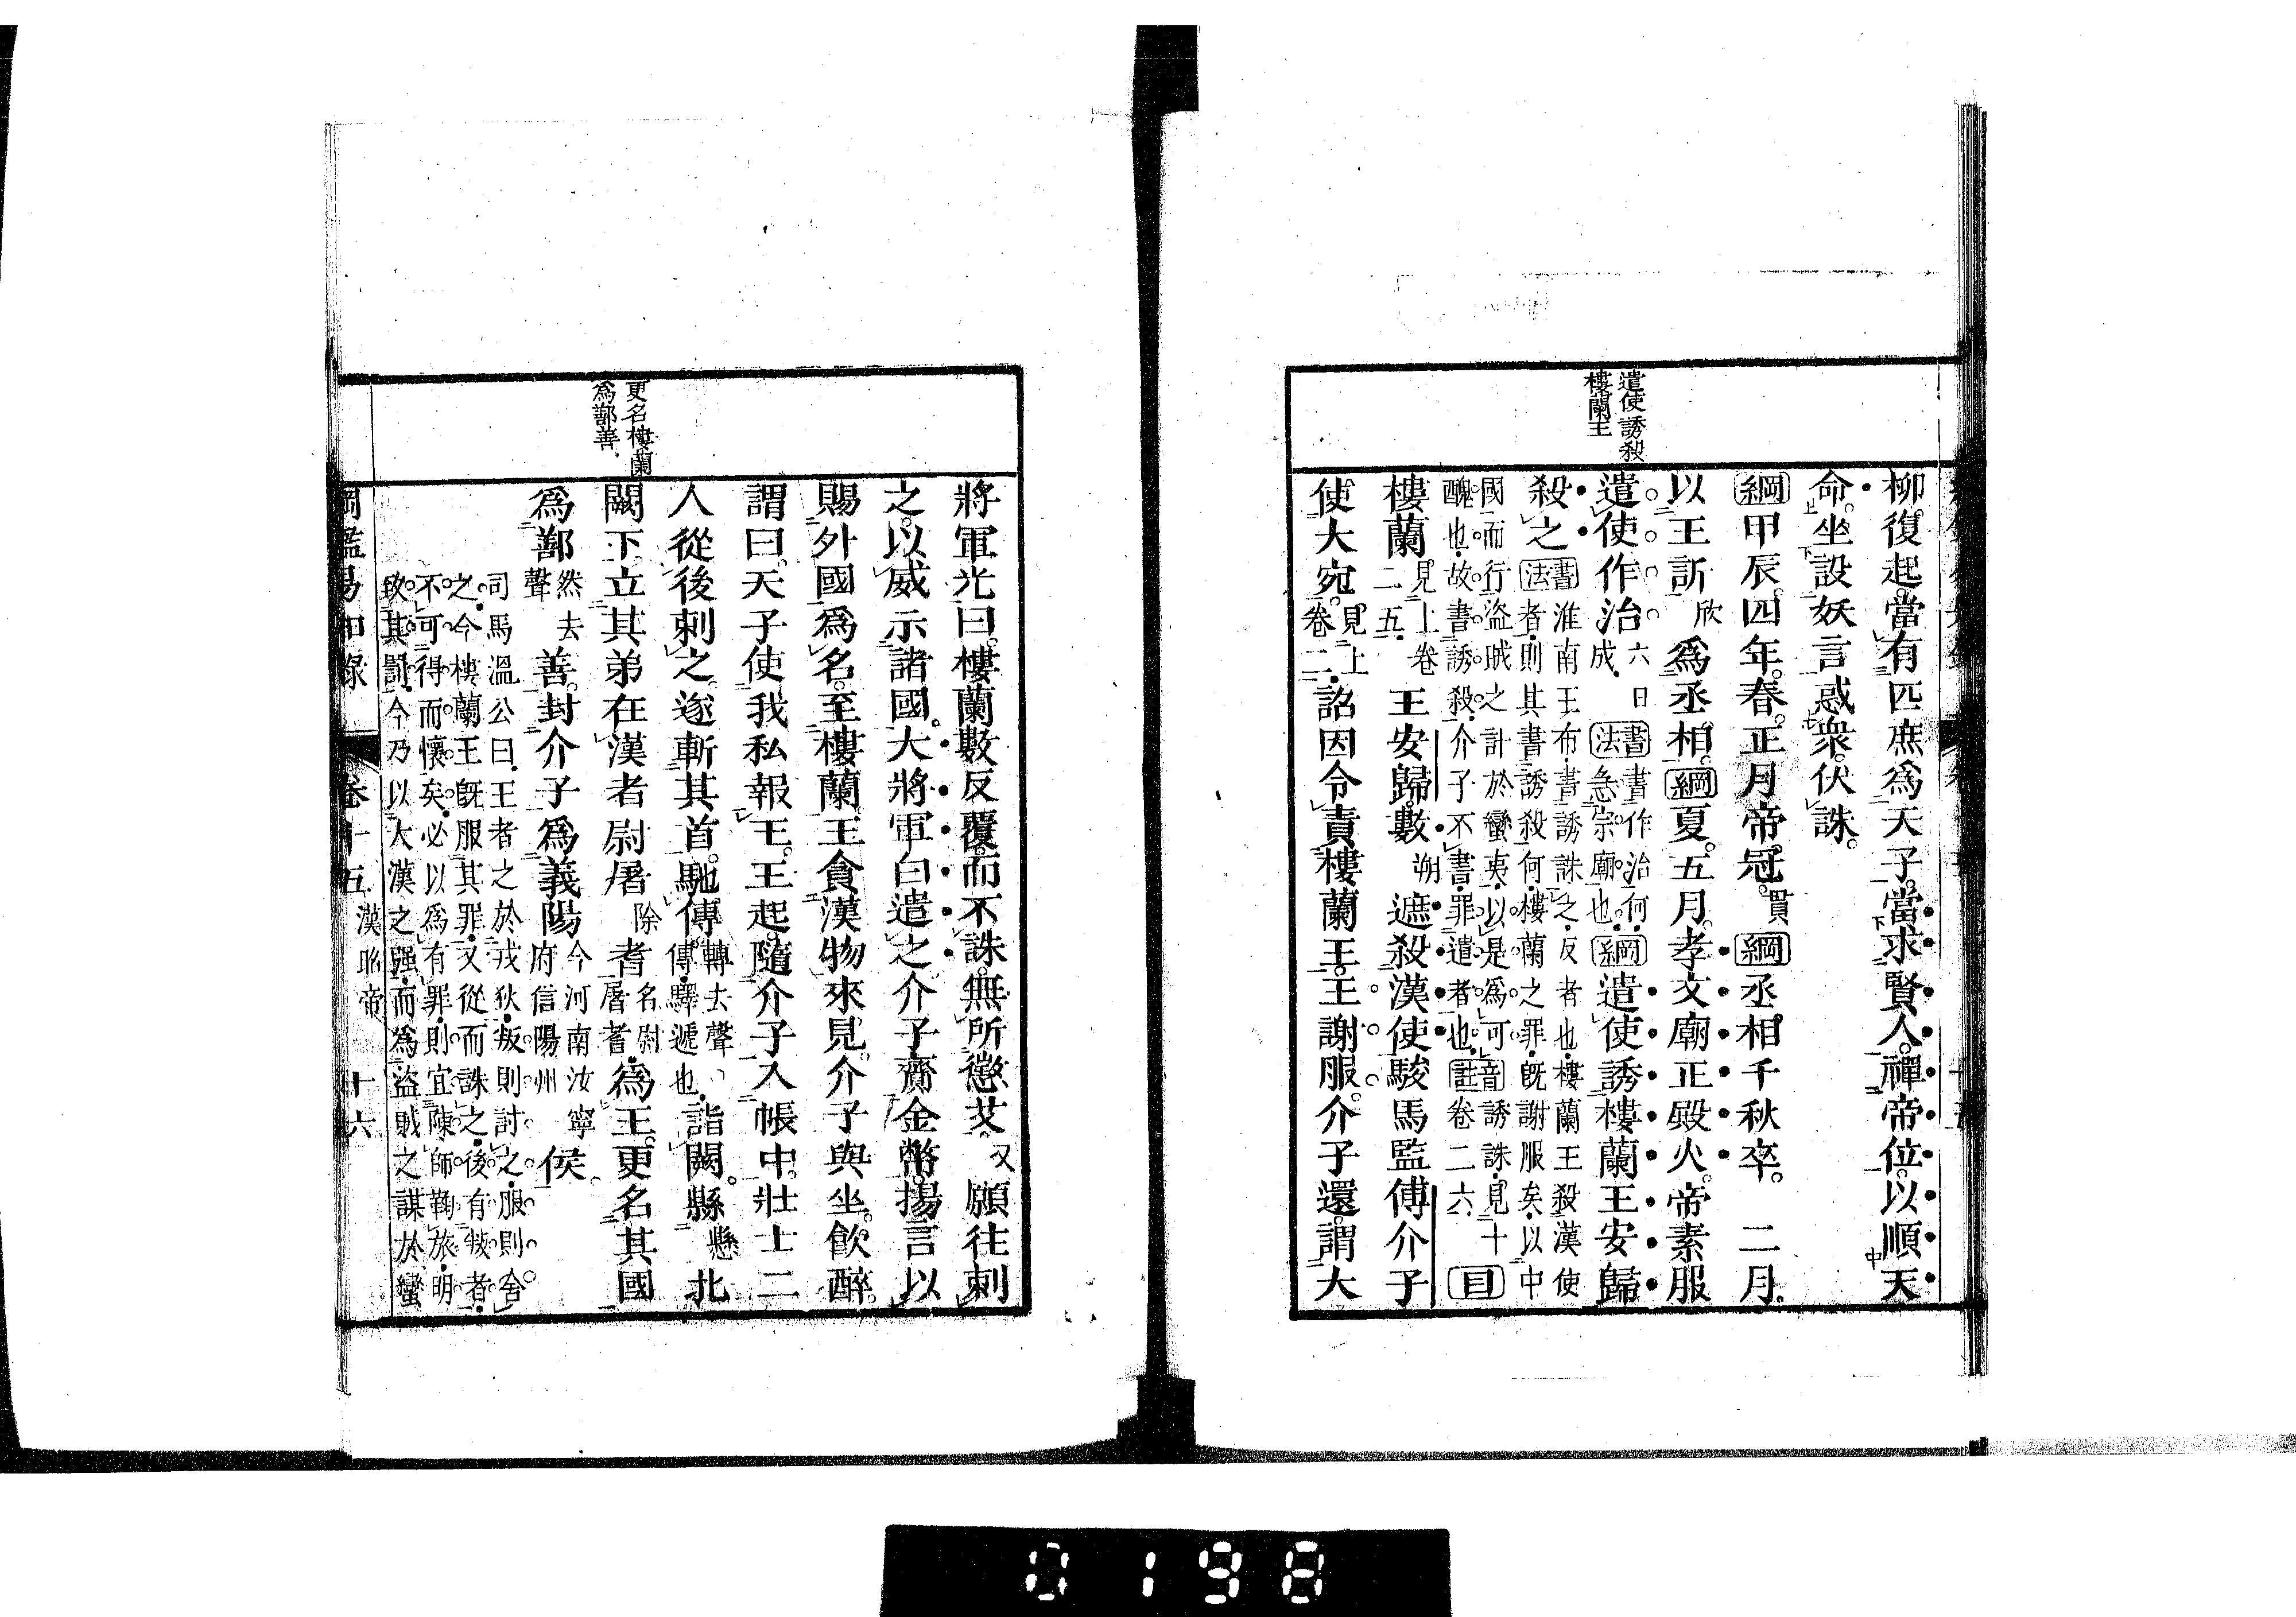 遣使誘殺
樓蘭王
柳復起當有匹庶爲天子當求賢人禪帝位以順天
命坐設妖言惑衆伏誅
綱甲辰四年春正月帝冠貫綱丞相千秋卒二月
以王訢欣爲丞相綱夏五月孝文廟正殿火帝素服
遣使作治六日成書法書作治何急宗廟也綱遣使誘樓蘭王安歸
殺之書法淮南王布書誘誅之反者也樓蘭王殺漢使
者則其書誘殺何樓蘭之罪旣謝服矣以中
國而行盜賊之計於蠻夷以是爲可
醜也故書誘殺介子不書罪遣者也音註誘誅見十卷二六目
樓蘭見上卷二五王安歸數朔遮殺漢使駿馬監傅介子
使大宛見上卷二詔因令責樓蘭王王謝服介子還謂大
更名樓蘭
爲鄯善
將軍光曰樓蘭數反覆而不誅無所懲艾乂願往刺
之以威示諸國大將軍白遣之介子齎金幣揚言以
賜外國爲名至樓蘭王貪漢物來見介子與坐飮醉
謂曰天子使我私報王王起隨介子入帳中壯士二
人從後刺之遂斬其首馳傳轉去聲傳驛遞也詣闕縣懸北
闕下立其弟在漢者尉屠除耆名尉屠耆爲王更名其國
爲鄯然去聲善封介子爲義陽今河南汝寧府信陽州侯
司馬溫公曰王者之於戎狄叛則討之服則舍
之今樓蘭王旣服其罪又從而誅之後有叛者
不可得而懷矣必以爲有罪則宜陳師鞠旅明
致其罰今乃以大漢之强而爲盜賊之謀於蠻
綱鑑易知錄 卷十五 漢昭帝 十六
0198